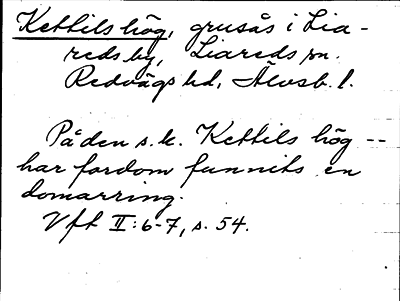 Kettils hög, grusås i Lia-
reds by, Liareds sn.
Redvägs hd, Älvsb. l.
På den s.k. Kettils hög --
har fordom funnits en
domarring.
Vft II:6-7, s. 54.